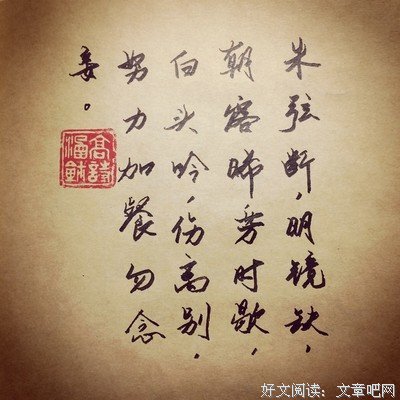 朱弦断，明镜缺，
朝露晞，芳时歇，
白头吟，伤离别，
努力加餐勿念
妾。
好文阅读：文章吧网